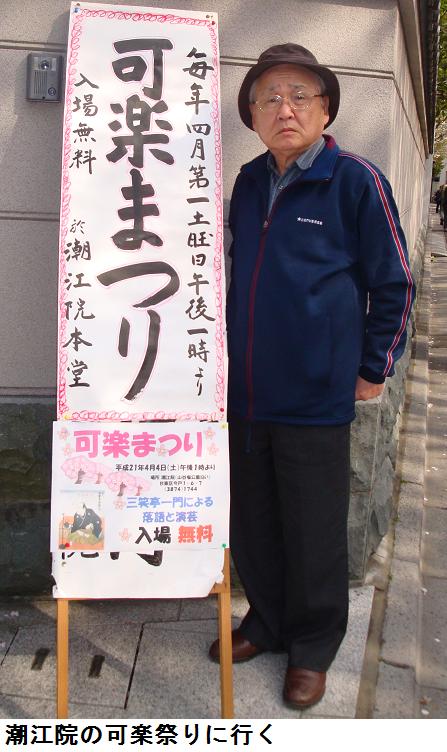 毎年四月第一土曜日午後一時より
可楽まつり
入場無料 於潮江院本堂
可楽まつり
平成21年4月4日(土)午後1時より
三笑亭一門による
落語と演芸
入場 無料
潮江院の可楽祭りに行く